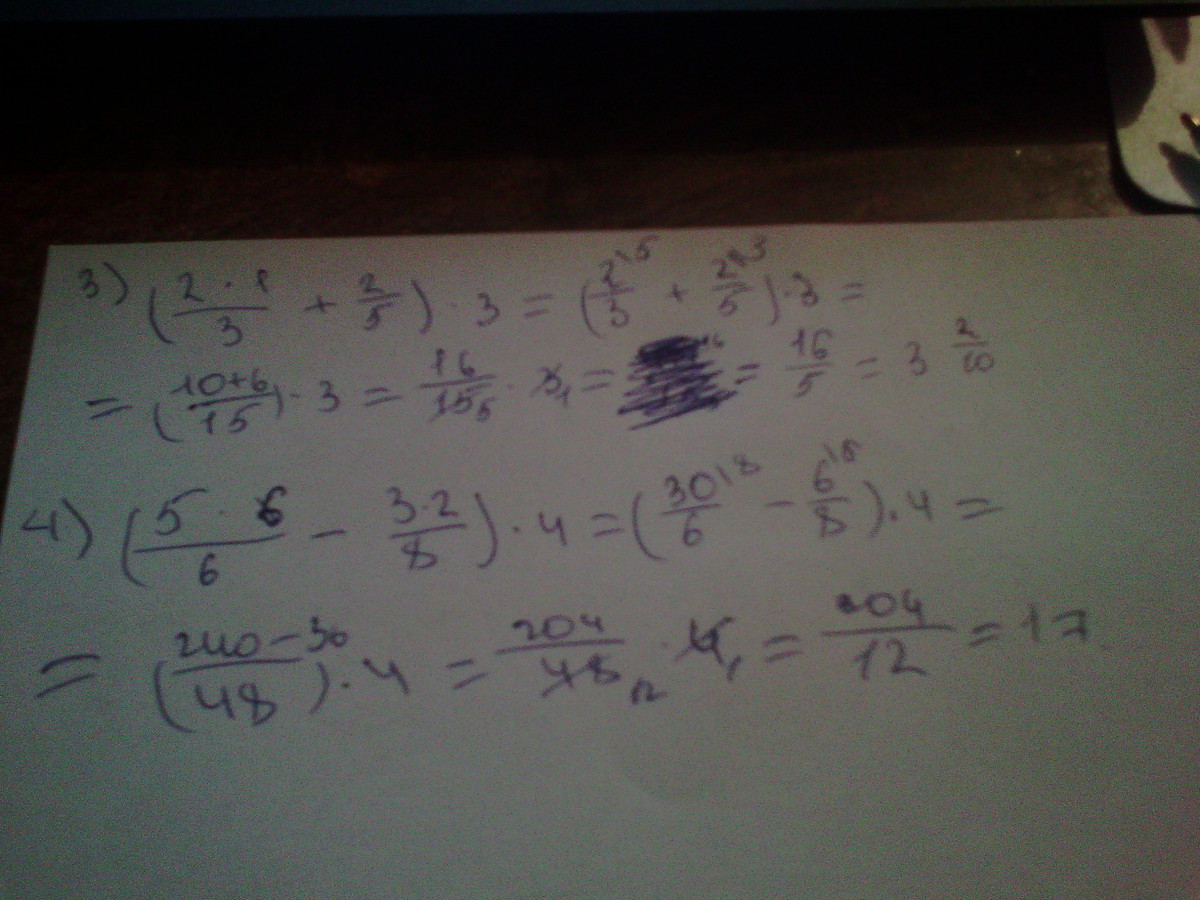 3) (2·1/3 + 2/5) · 3 = (2\5/3 + 2\3/5) · 3 =
= (10+6/15) · 3 = 16/15 5 · 3 1 = = 16/5 = 3 2/10
4) (5·6/6 − 3·2/8) · 4 = (30\8/6 − 6\6/8) · 4 =
= (240−36/48) · 4 = 204/48 12 · 4 1 = 204/12 = 17